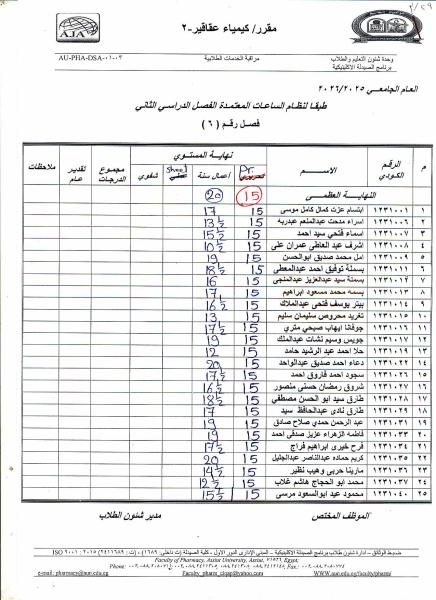 ٢/٢٩
AJA
AU-PHA-DSA-٠١-٠٣
مقرر/ كيمياء عقاقير-٢
مراقبة الخدمات الطلابية
وحدة شئون التعليم والطلاب
برنامج الصيدلة الاكلينيكية
العام الجامعي ٢٠٢٦/٢٠٢٥
طبقا لنظام الساعات المعتمدة الفصل الدراسي الثاني
فصل رقم ( ٦ )
م الرقم الكودي الاســـم نهاية المستوي Pr. أعمال سنة Sheet شفوي مجموع الدرجات تقدير عام ملاحظات
النهاية العظمى 15 20
١ ١٢٣١٠٠١ ابتسام عزت كمال كامل موسى 15 17
٢ ١٢٣١٠٠٦ اسراء مدحت عبدالمنعم عبدربه 15 13 ½
٣ ١٢٣١٠٠٧ اسماء فتحي سيد احمد 15 15 ½
٤ ١٢٣١٠٠٨ اشرف عبد العاطى عمران على 15 10 ½
٥ ١٢٣١٠٠٩ امل محمد صديق ابوالحسن 15 19
٦ ١٢٣١٠١١ بسملة توفيق احمد عبدالمعطى 15 18 ½
٧ ١٢٣١٠١٢ بسملة سيد عبدالعزيز عبدالمنجى 15 16
٨ ١٢٣١٠١٣ بسمه محمد مسعود ابراهيم 15 17
٩ ١٢٣١٠١٤ بيتر يوسف فتحى عبدالملاك 15 16 ½
١٠ ١٢٣١٠١٥ تغريد محروص سليمان سليم 15 13
١١ ١٢٣١٠١٦ جوفانا ايهاب صبحي متري 15 17 ½
١٢ ١٢٣١٠١٧ جويس وسيم نشات عبدالملك 15 19
١٣ ١٢٣١٠١٩ حلا احمد عبد الرشيد حامد 15 12
١٤ ١٢٣١٠٢٢ دعاء احمد صديق عبدالواحد 15 20
١٥ ١٢٣١٠٢٦ سجود احمد فاروق احمد 15 17 ½
١٦ ١٢٣١٠٢٧ شروق رمضان حسنى منصور 15 16 ½
١٧ ١٢٣١٠٢٨ طارق سيد ابو الحسن مصطفي 15 18 ½
١٨ ١٢٣١٠٢٩ طارق نادى عبدالحافظ سيد 15 17
١٩ ١٢٣١٠٣١ عبد الرحمن حمدي صلاح صادق 15 19
٢٠ ١٢٣١٠٣٣ فاطمه الزهراء عزيز صدقى احمد 15 19
٢١ ١٢٣١٠٣٤ فرح خيرى ابراهيم فراج 15 17 ½
٢٢ ١٢٣١٠٣٥ كريم حماده عبدالناصر عبدالجليل 15 20
٢٣ ١٢٣١٠٣٦ مارينا حربى وهيب نظير 15 14 ½
٢٤ ١٢٣١٠٣٧ محمد ابو الحجاج هاشم غلاب 15 12 ½
٢٥ ١٢٣١٠٤٠ محمود عيد ابوالسعود مرسى 15 15 ½
الموظف المختص
مدير شئون الطلاب
Faculty of Pharmacy, Assiut University, Assiut, 71526, Egypt;
e-mail: pharmacy@aun.edu.eg Faculty_pharm_ciqap@yahoo.com http://www.aun.edu.eg/faculty/pharm/